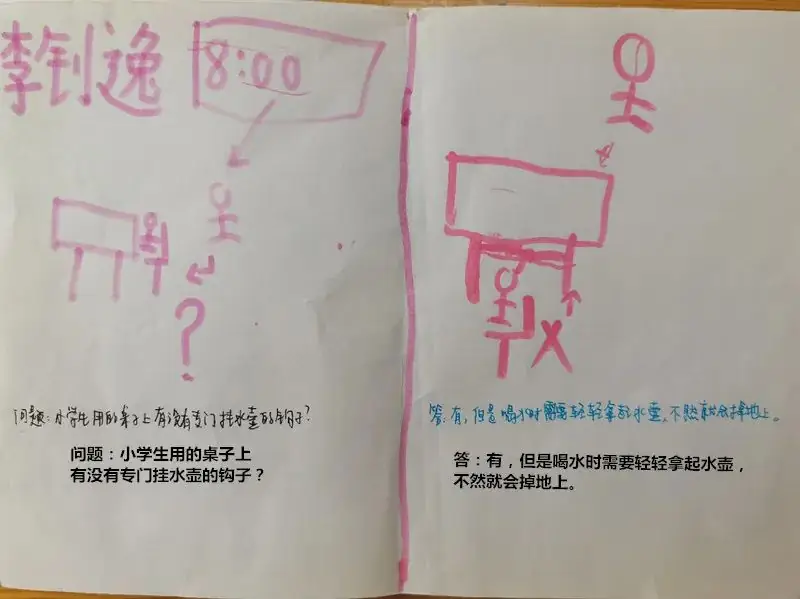 李钊逸
8:00
?
问题:小学生用的桌子上有没有专门挂水壶的钩子?
问题：小学生用的桌子上
有没有专门挂水壶的钩子？
答:有,但是喝水时需要轻轻拿起水壶,不然就会掉地上。
答：有，但是喝水时需要轻轻拿起水壶，
不然就会掉地上。